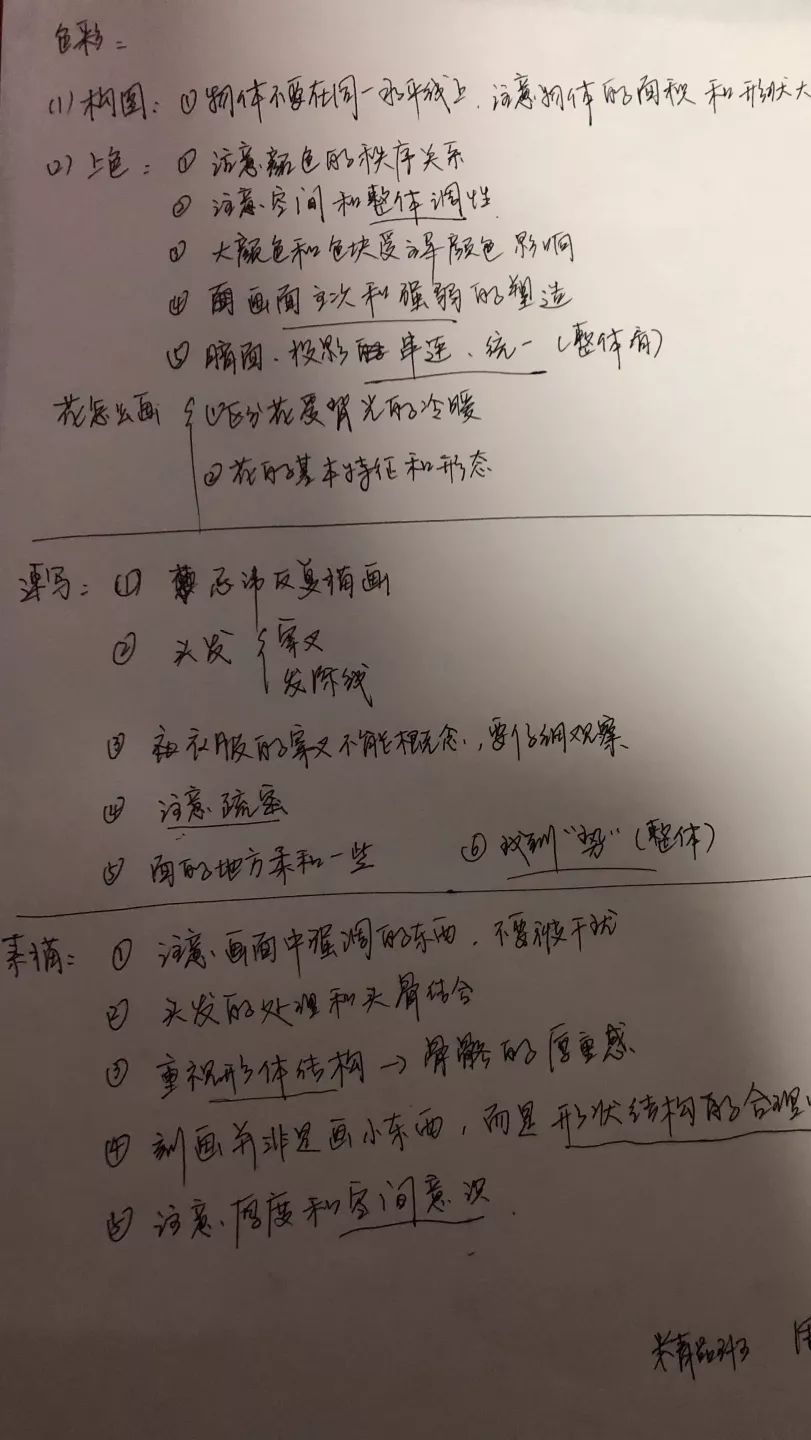 色彩:
(1) 构图: ① 物体不要在同一水平线上. 注意物体的面积和形状大
(2) 上色: ① 注意颜色的秩序关系
② 注意空间和整体调性
③ 大颜色和色块受环境颜色影响
④ 画面主次和强弱的塑造
⑤ 暗面、投影的串连、统一 (整体有)
花怎么画 ① 区分花受背光的冷暖
② 花的基本特征和形态
速写: ① 忌讳反复描画
② 头发 穿叉
发际线
③ 衣服的穿叉不能概念, 要仔细观察
④ 注意疏密
⑤ 面的地方柔和一些 ⑥ 找到“势” (整体)
素描: ① 注意画面中强调的东西, 不要被干扰
② 头发的处理和头骨结合
③ 重视形体结构 → 骨骼的厚重感
④ 刻画并非是画小东西, 而是形状结构的合理
⑤ 注意厚度和空间意识.
精品班